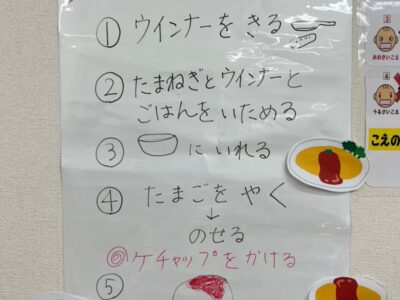 ① ウインナーを きる
② たまねぎとウインナーと
ごはんをいためる
③ にいれる
④ たまごを やく
↓
のせる
◎ケチャップをかける
⑤
②
おおきいこえ
④
うるさいこえ
こえの